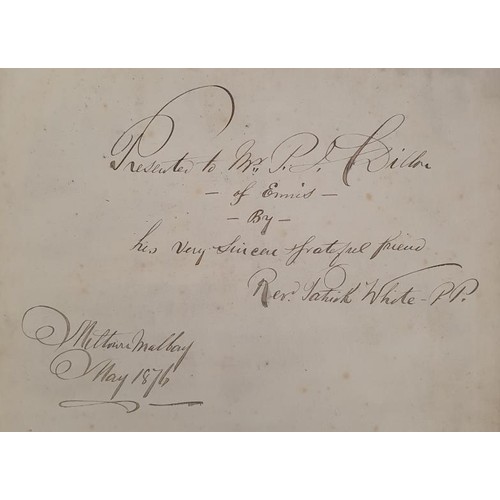 Presented to Mr. P. J. Dillon
- of Ennis -
- By -
his very sincere & grateful friend
Revd. Patrick White - P.P.
Miltown Malbay
May 1876